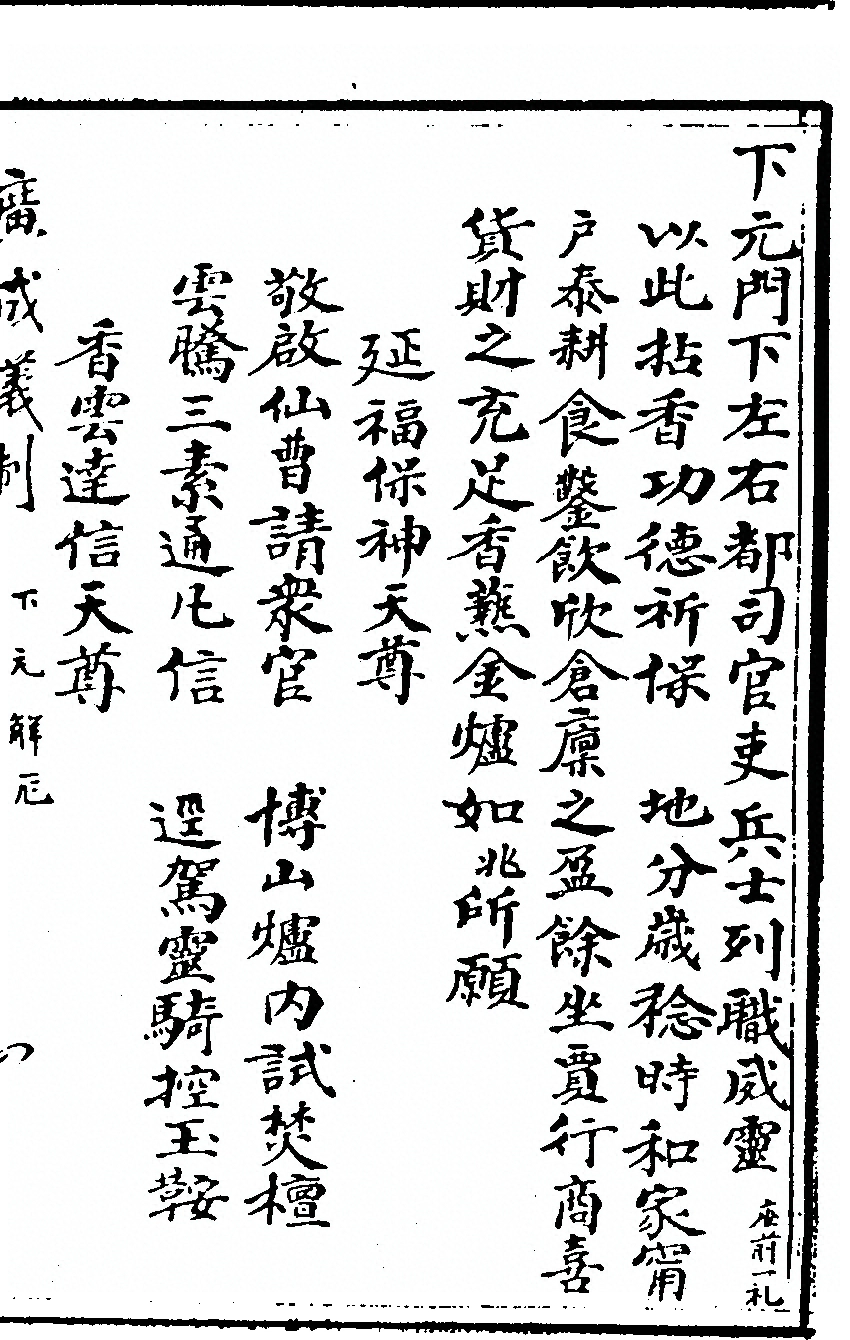 下元門下左右都司官吏兵士列職威靈 座前一礼
以此拈香功德祈保 地分歲稔時和家甯
户泰耕食鑿飲欣倉廪之盈餘坐賈行商喜
貨財之充足香爇金爐如兆所願
延福保神天尊
敬啟仙曹請衆官 博山爐内試焚檀
雲騰三素通凡信 逕駕靈騎控玉鞍
香雲達信天尊
廣成義制 下元解厄 八